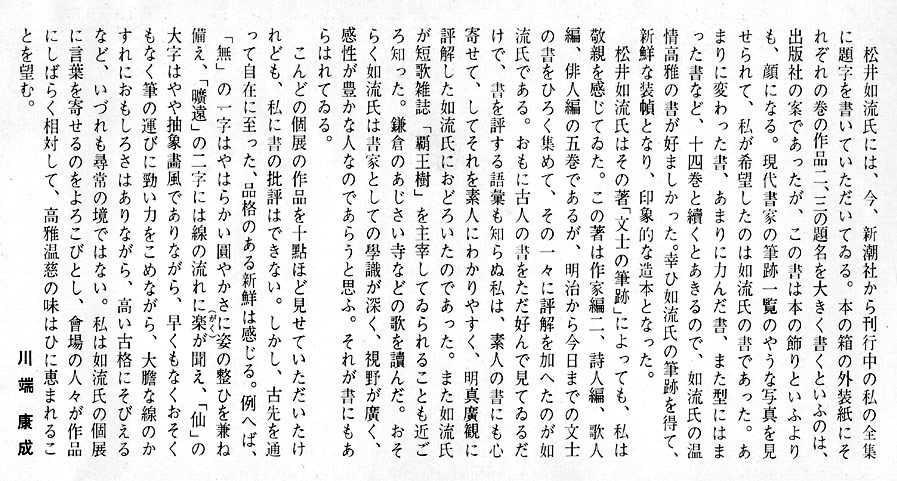 松井如流氏には、今、新潮社から刊行中の私の全集
に題字を書いていただいてゐる。本の箱の外装紙にそ
れぞれの巻の作品二、三の題名を大きく書くといふのは、
出版社の案であったが、この書は本の飾りといふより
も、顔になる。現代書家の筆跡一覧のやうな写真を見
せられて、私が希望したのは如流氏の書であった。あ
まりに変わった書、あまりに力んだ書、また型にはま
った書など、十四巻と續くとあきるので、如流氏の温
情高雅の書が好ましかった。幸ひ如流氏の筆跡を得て、
新鮮な装幀となり、印象的な造本となった。
松井如流氏はその著「文士の筆跡」によっても、私は
敬親を感じてゐた。この著は作家編二、詩人編、歌人
編、俳人編の五巻であるが、明治から今日までの文士
の書をひろく集めて、その一々に評解を加へたのが如
流氏である。おもに古人の書をただ好んで見てゐるだ
けで、書を評する語彙も知らぬ私は、素人の書にも心
寄せて、してそれを素人にわかりやすく、明真廣観に
評解した如流氏におどろいたのであった。また如流氏
が短歌雑誌「覇王樹」を主宰してゐられることも近ご
ろ知った。鎌倉のあじさい寺などの歌を讀んだ。おそ
らく如流氏は書家としての學識が深く、視野が廣く、
感性が豊かな人なのであらうと思ふ。それが書にもあ
らはれてゐる。
こんどの個展の作品を十點ほど見せていただいたけ
れども、私に書の批評はできない。しかし、古先を通
って自在に至った、品格のある新鮮は感じる。例へば、
「無」の一字はやはらかい圓やかさに姿の整ひを兼ね
備え、「曠遠」の二字には線の流れに楽(がく)が聞え、「仙」の
大字はやや抽象畵風でありながら、早くもなくおそく
もなく筆の運びに勁い力をこめながら、大膽な線のか
すれにおもしろさはありながら、高い古格にそびえる
など、いづれも尋常の境ではない。私は如流氏の個展
に言葉を寄せるのをよろこびとし、會場の人々が作品
にしばらく相対して、高雅温慈の味はひに恵まれるこ
とを望む。
川端康成